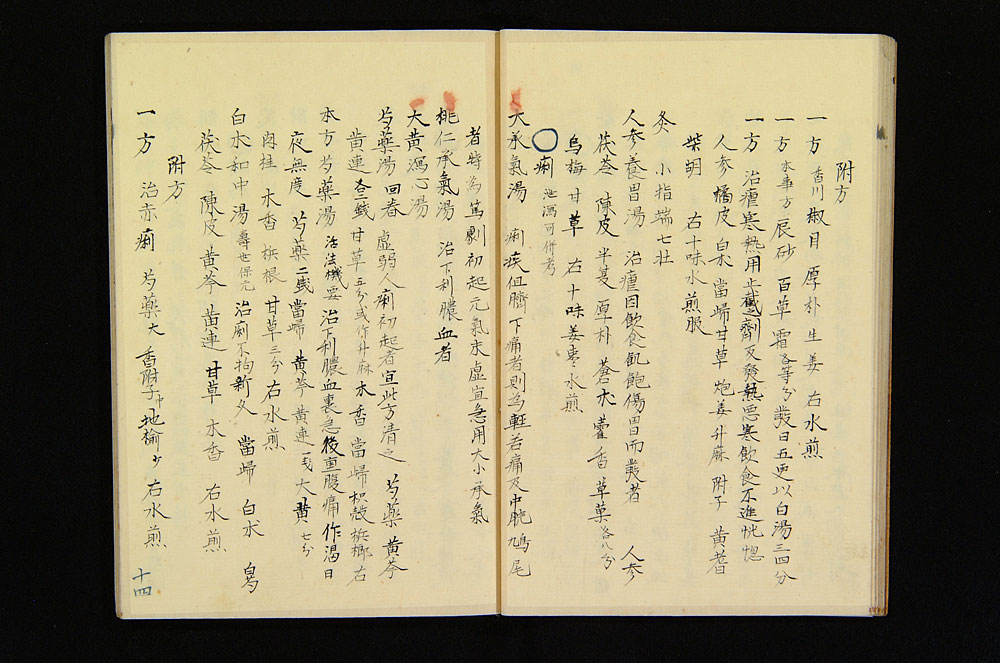 附方
一方 香川 椒目 厚朴 生姜 右水煎
一方 本事方 辰砂 百草霜 各等分 發日五更以白湯三四分
一方 治瘧寒熱用止截劑反發熱惡寒飲食不進恍惚
人参 橘皮 白朮 當帰 甘草 炮姜 升麻 附子 黄耆
柴胡 右十味水煎服
灸 小指端七壮
人参養胃湯 治瘧因飲食飢飽傷胃而發者 人参
茯苓 陳皮 半夏 厚朴 蒼朮 藿香 草菓 各八分
烏梅 甘草 右十味姜枣水煎
〇痢 泄瀉可併考
大承氣湯 痢疾但臍下痛者則為軽若痛及中脘鳩尾
者時為篤劇初起元氣未虚宜急用大小承氣
桃仁承氣湯 治下利膿血者
大黄瀉心湯
芍薬湯 回春 虚弱人痢初起者宜此方清之 芍薬 黄芩
黄連 各三錢 甘草 五分或作升麻 木香 當帰 枳殻 梹榔 右
本方芍薬湯 治法機要 治下利膿血裏急後重腹痛作渇日
夜無度 芍薬 二錢 當帰 黄芩 黄連 一戔 大黄 七分
肉桂 木香 梹榔 甘草 三分 右水煎
白朮和中湯 壽世保元 治痢不拘新久 當帰 白朮 白芍
茯苓 陳皮 黄芩 黄連 甘草 木香 右水煎
附方
一方 治赤痢 芍薬大 香附子中 地榆少 右水煎
十四